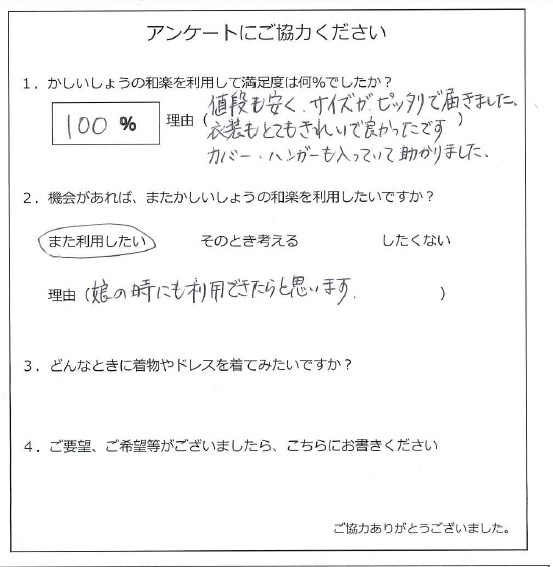 アンケートにご協力ください
1．かしいしょうの和楽を利用して満足度は何%でしたか？
100 % 理由（値段も安く、サイズがピッタリで届きました。
衣装もとてもきれいで良かったです）
カバー・ハンガーも入っていて助かりました。
2．機会があれば、またかしいしょうの和楽を利用したいですか？
また利用したい そのとき考える したくない
理由（娘の時にも利用できたらと思います。）
3．どんなときに着物やドレスを着てみたいですか？
4．ご要望、ご希望等がございましたら、こちらにお書きください
ご協力ありがとうございました。